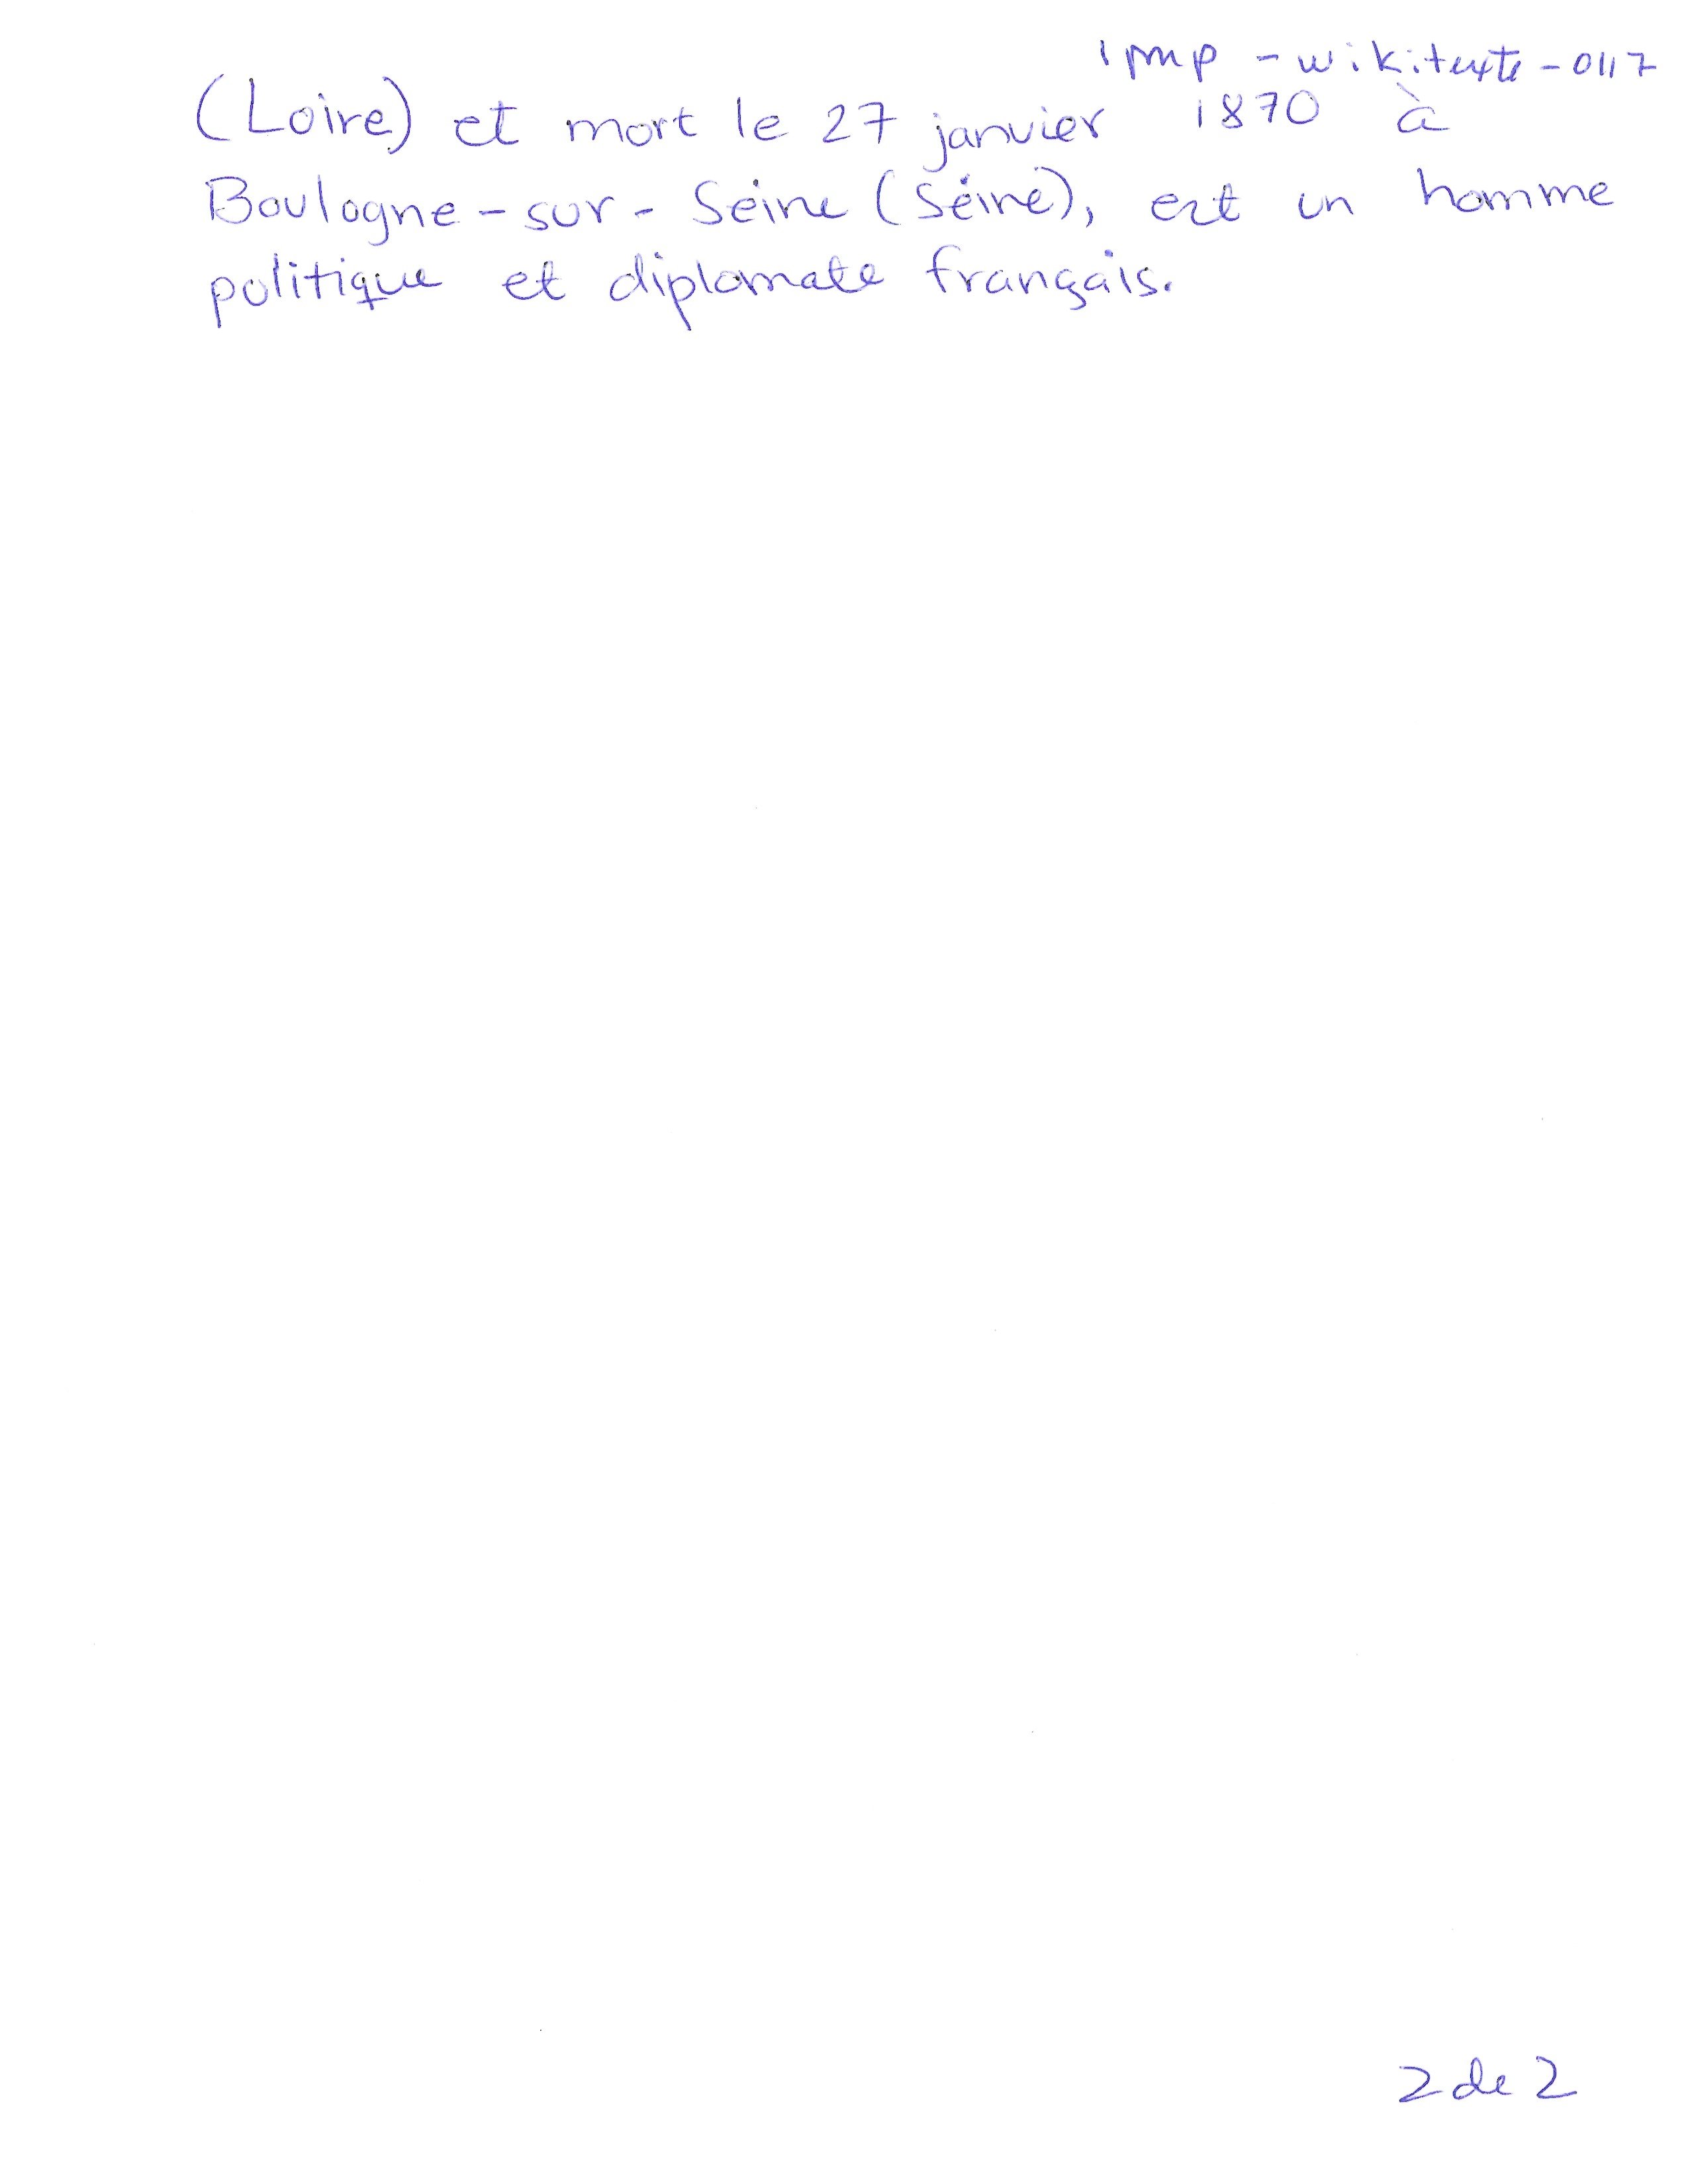 1pmp - wikitexte - 0117
(Loire) et mort le 27 janvier 1870 à
Boulogne-sur-Seine (Seine), est un homme
politique et diplomate français.
2 de 2